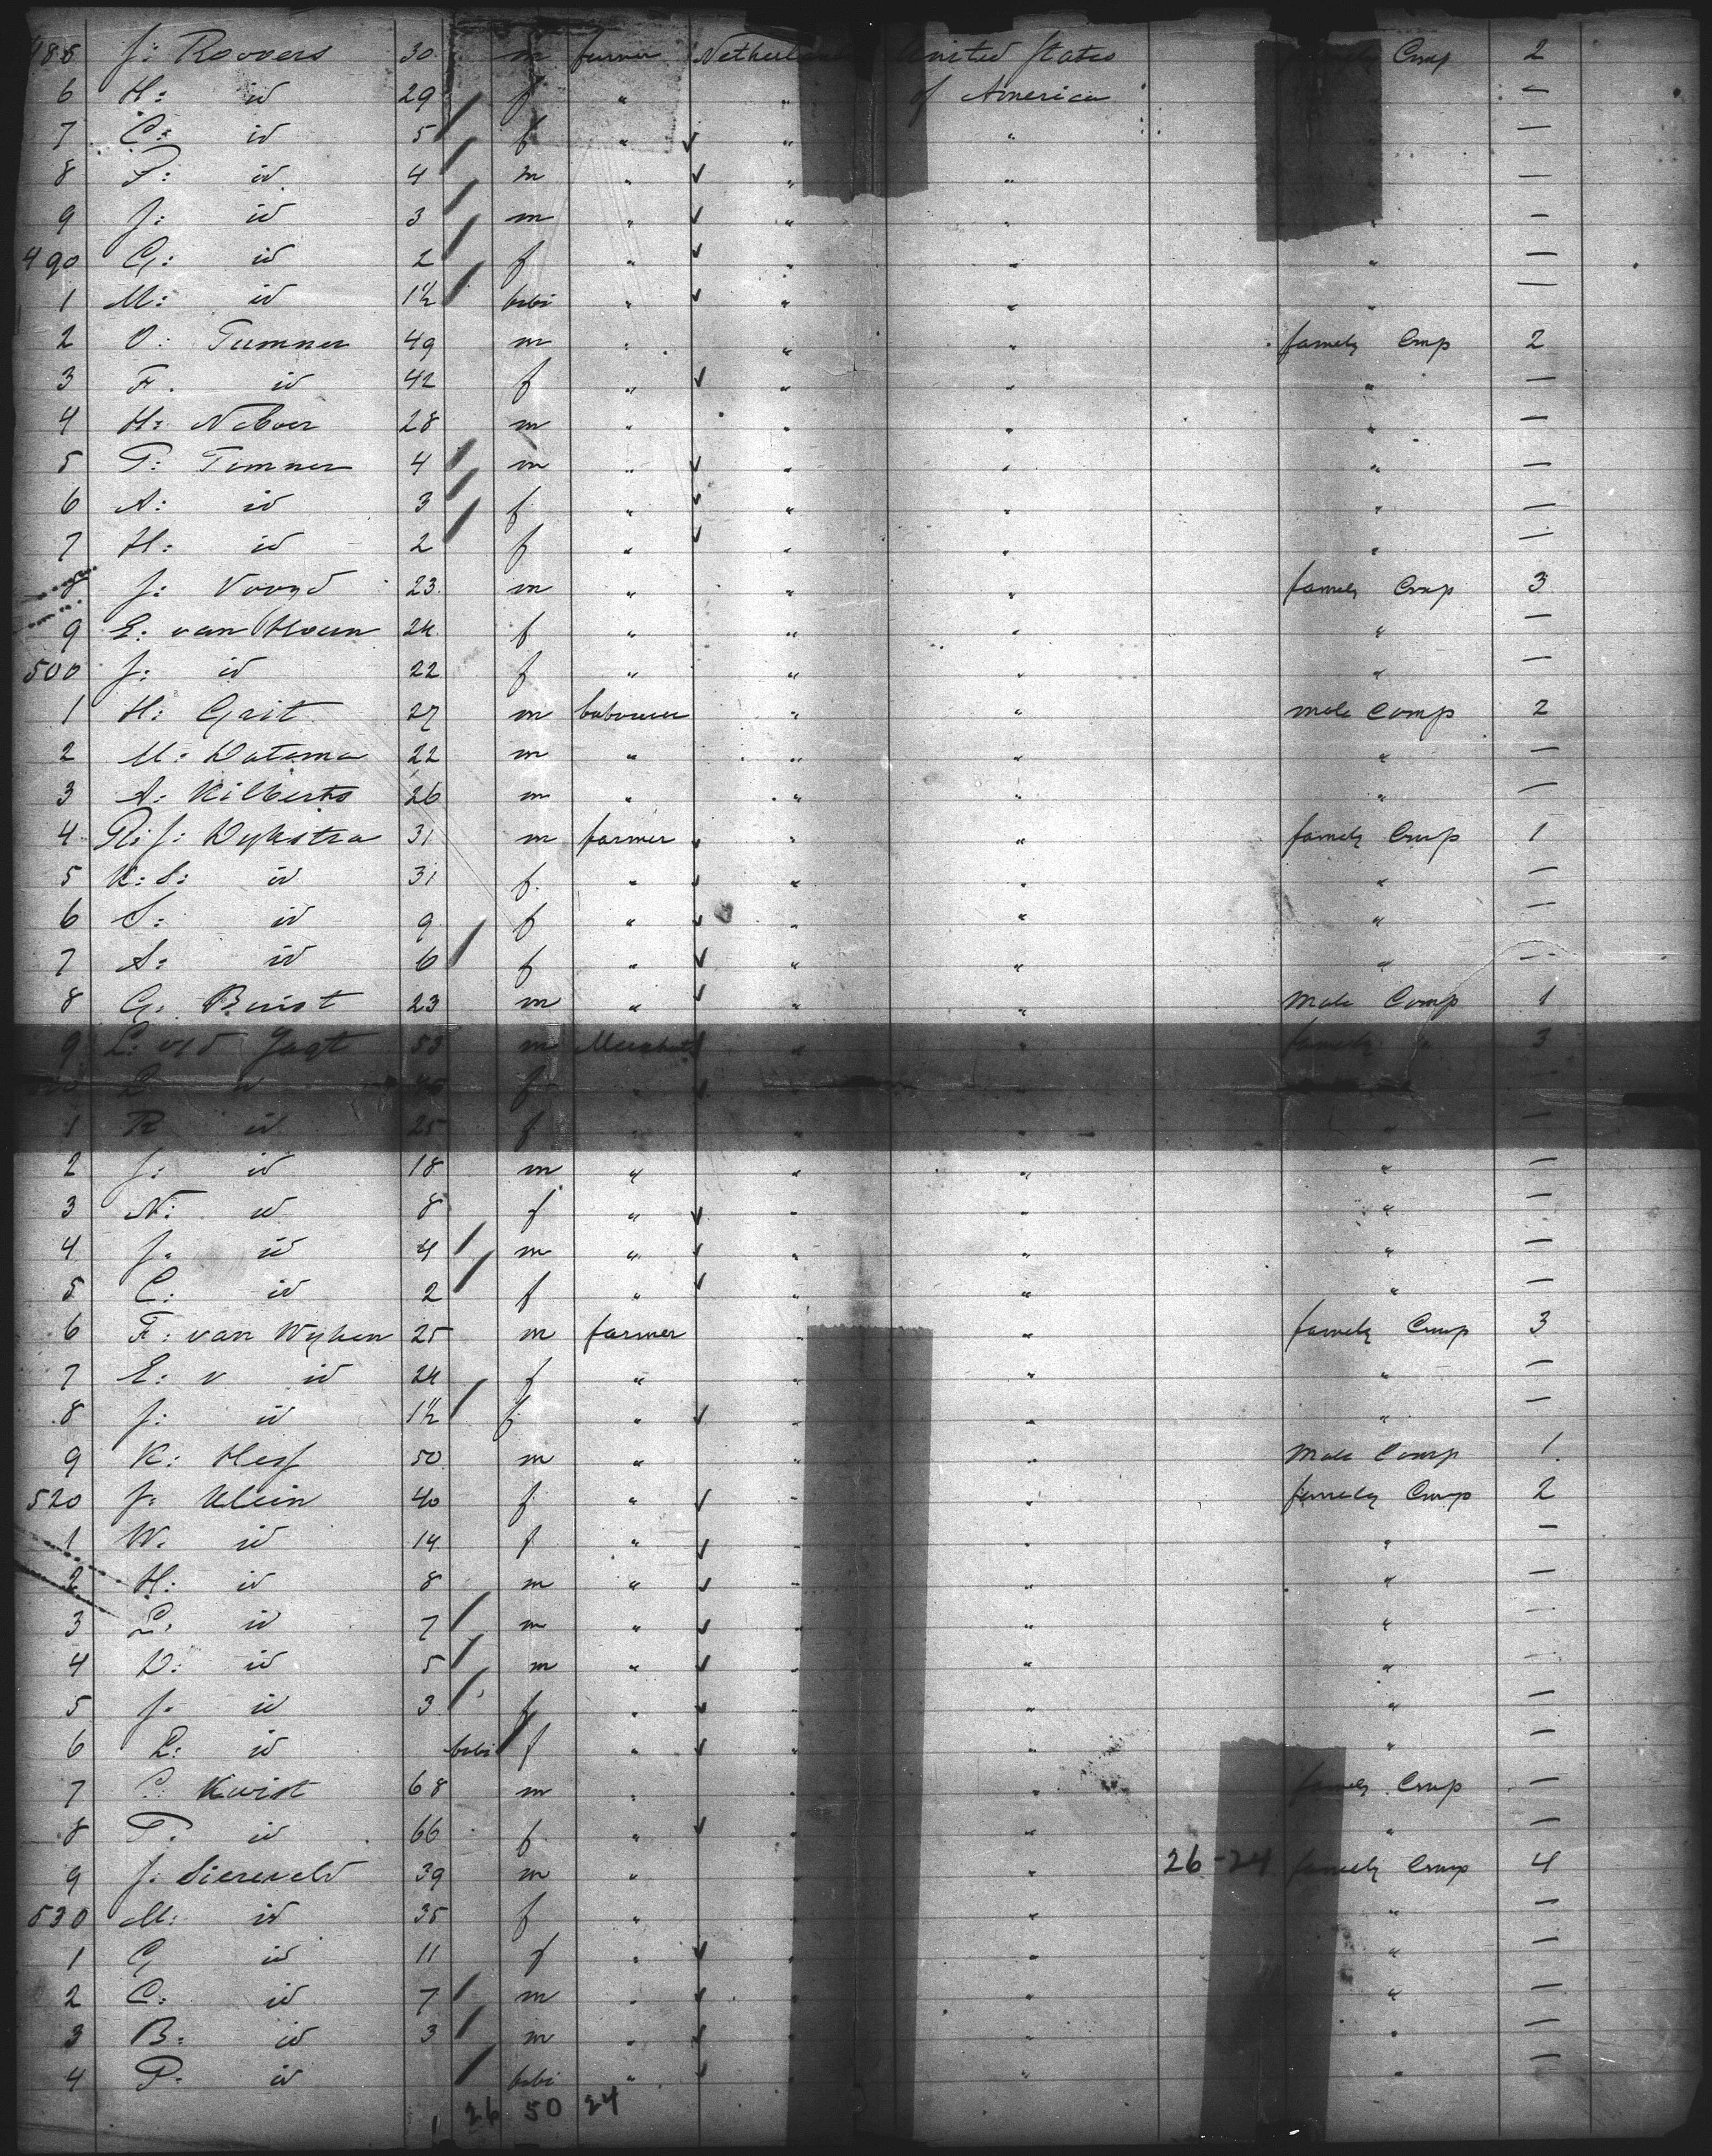 485 J: Roovers 30 m farmer Netherland United States family Comp 2
6 H: id 29 f " " of America —
7 C: id 5 f " " " —
8 P: id 4 m " " " —
9 J: id 3 m " " " " —
490 G: id 2 f " " " " —
1 M: id 1½ bebi " " " " —
2 O: Tumner 49 m " " " famely Cmp 2
3 F. id 42 f " " " " —
4 H: Neboer 28 m " " " " —
5 T: Temner 4 m " " " " —
6 A: id 3 f " " " " —
7 H: id 2 f " " " " —
8 J: Voogd 23 m " " " famely Cmp 3
9 E: van Houn 24 f " " " " —
500 J: id 22 f " " " " —
1 H: Grit 27 m " " male Comp 2
2 M: Datema 22 m " " " " —
3 A: Kilberts 26 m " " " " —
4 J: Dykstra 31 m farmer " " famely Cmp 1
5 K: S: id 31 f " " " " —
6 S: id 9 f " " " " —
7 A: id 6 f " " " " —
8 G: Buist 23 m " " " Male Comp 1
9 L: v/d Jagt 53 m " " famely " 3
id f " " —
1 R id 25 f " " " " —
2 J: id 18 m " " " " —
3 N: id 8 f " " " " —
4 J: id 4 m " " " " —
5 C: id 2 f " " " " —
6 F: van Wyken 25 m farmer " " famely Cmp 3
7 E: v id 24 f " " " " —
8 J: id 1½ f " " " " —
9 K: Hess 50 m " " " Male Comp 1
520 J: Klein 40 f " " " famely Cmp 2
1 W: id 14 f " " " " —
2 H: id 8 m " " " " —
3 L: id 7 m " " " " —
4 D: id 5 m " " " " —
5 J: id 3 f " " " " —
6 L: id bebi f " " " " —
7 Kwist 68 m " " famely Cmp —
8 T. id 66 f " " " " —
9 J: Siereveld 39 m " " 26-24 famely Cmp 4
530 M: id 35 f " " " —
1 G id 11 f " " " " —
2 C: id 7 m " " " " —
3 B: id 3 m " " " " —
4 P. id bebi " " " " —
26 50 24